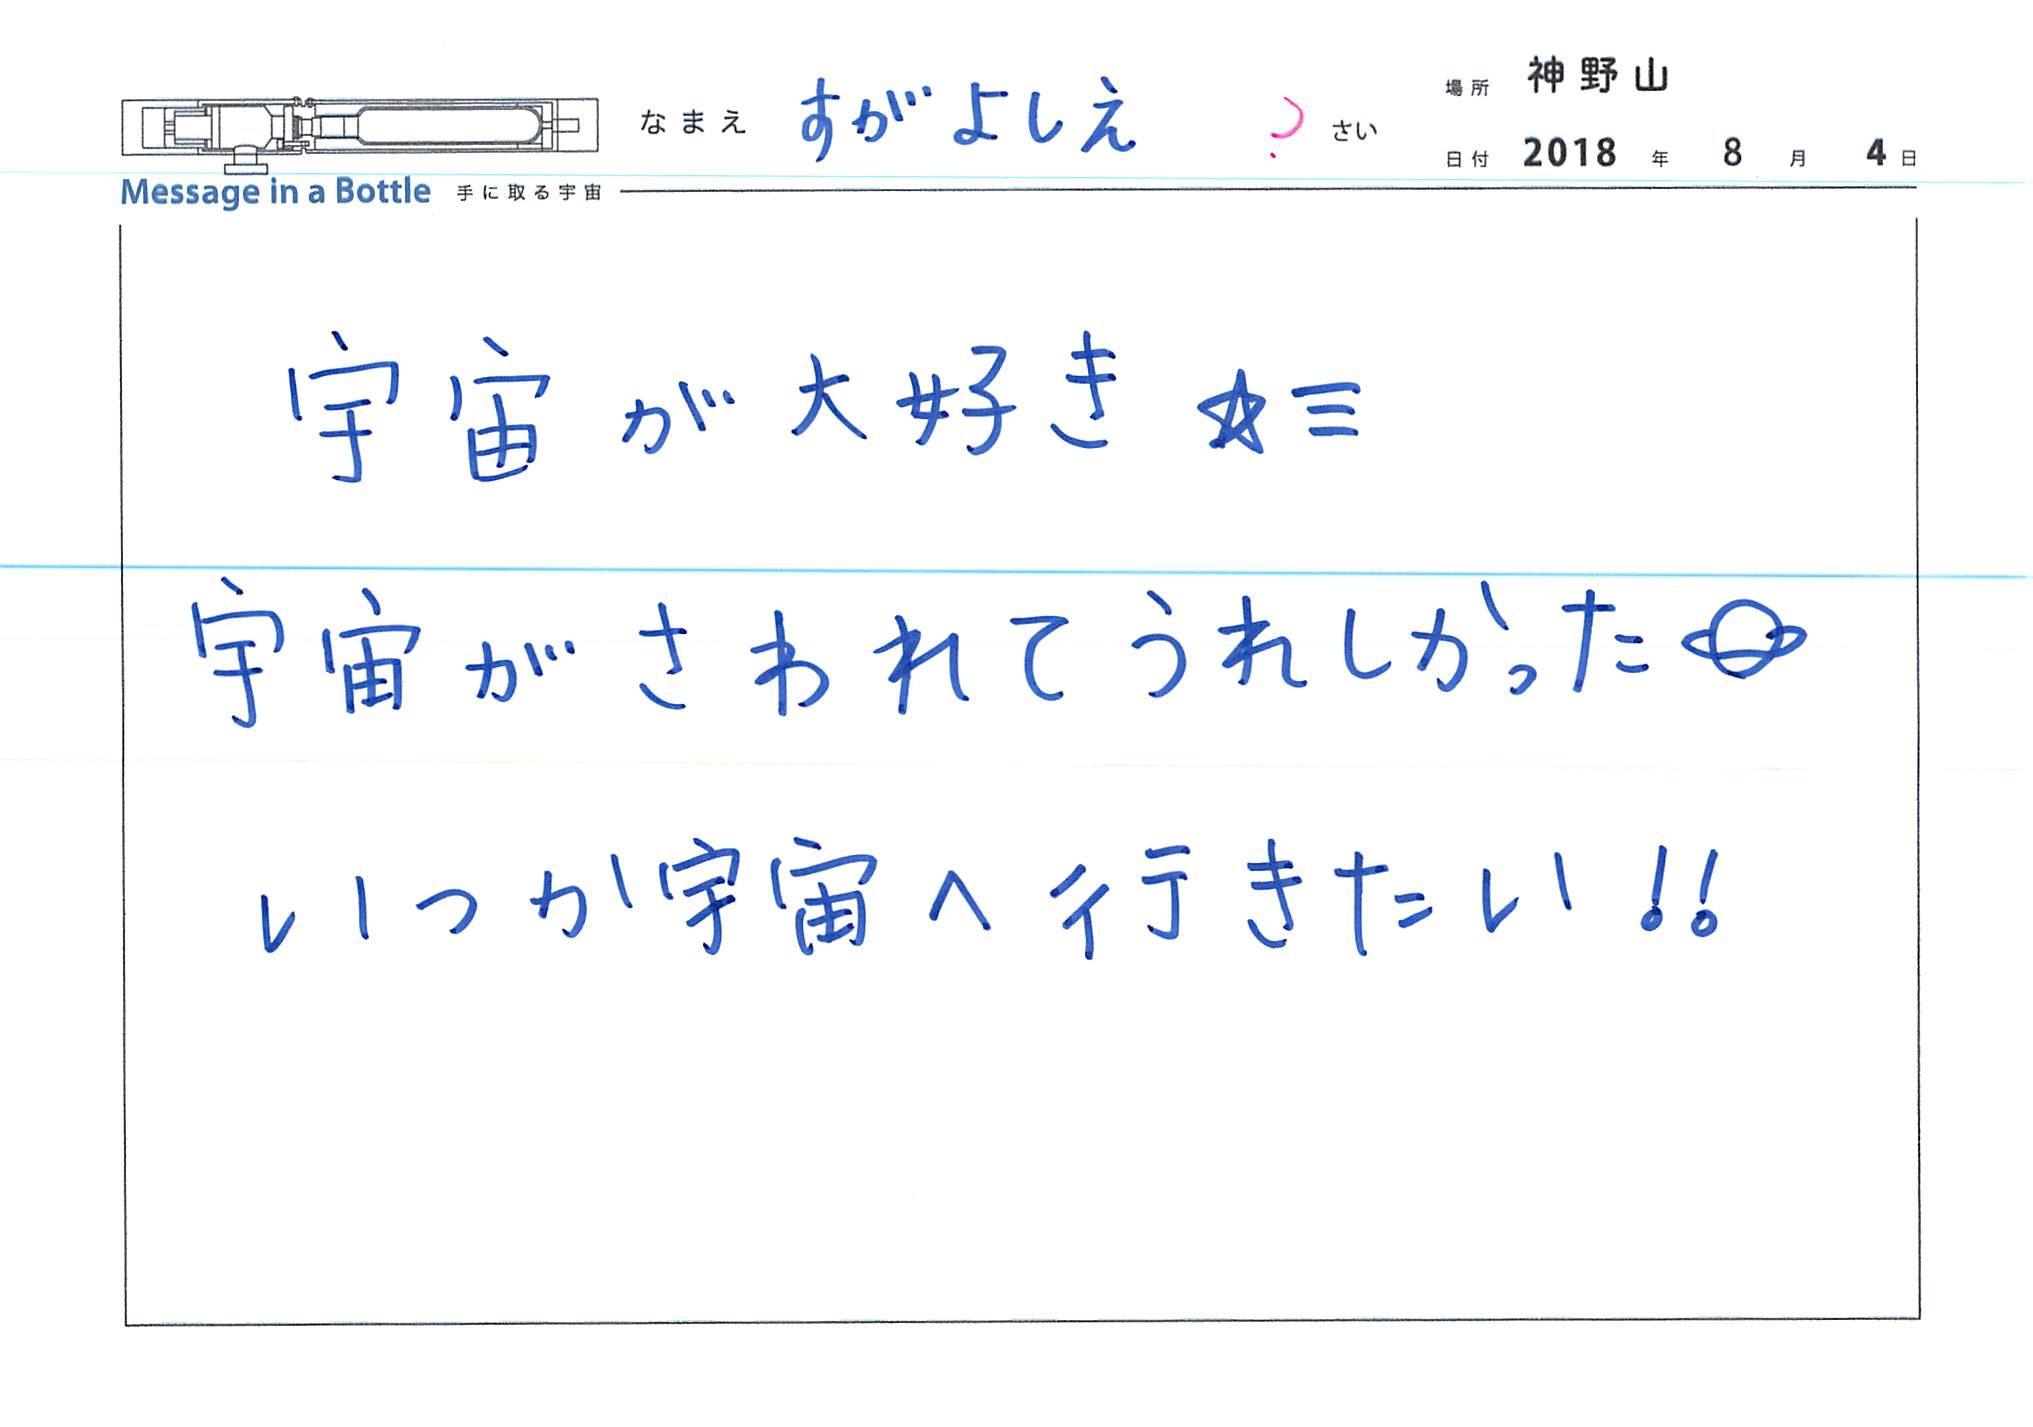 場所 神野山
なまえ すがよしえ ? さい
日付 2018 年 8 月 4 日
Message in a Bottle 手に取る宇宙
宇宙が大好き☆三
宇宙がさわれてうれしかった
いつか宇宙へ行きたい!!